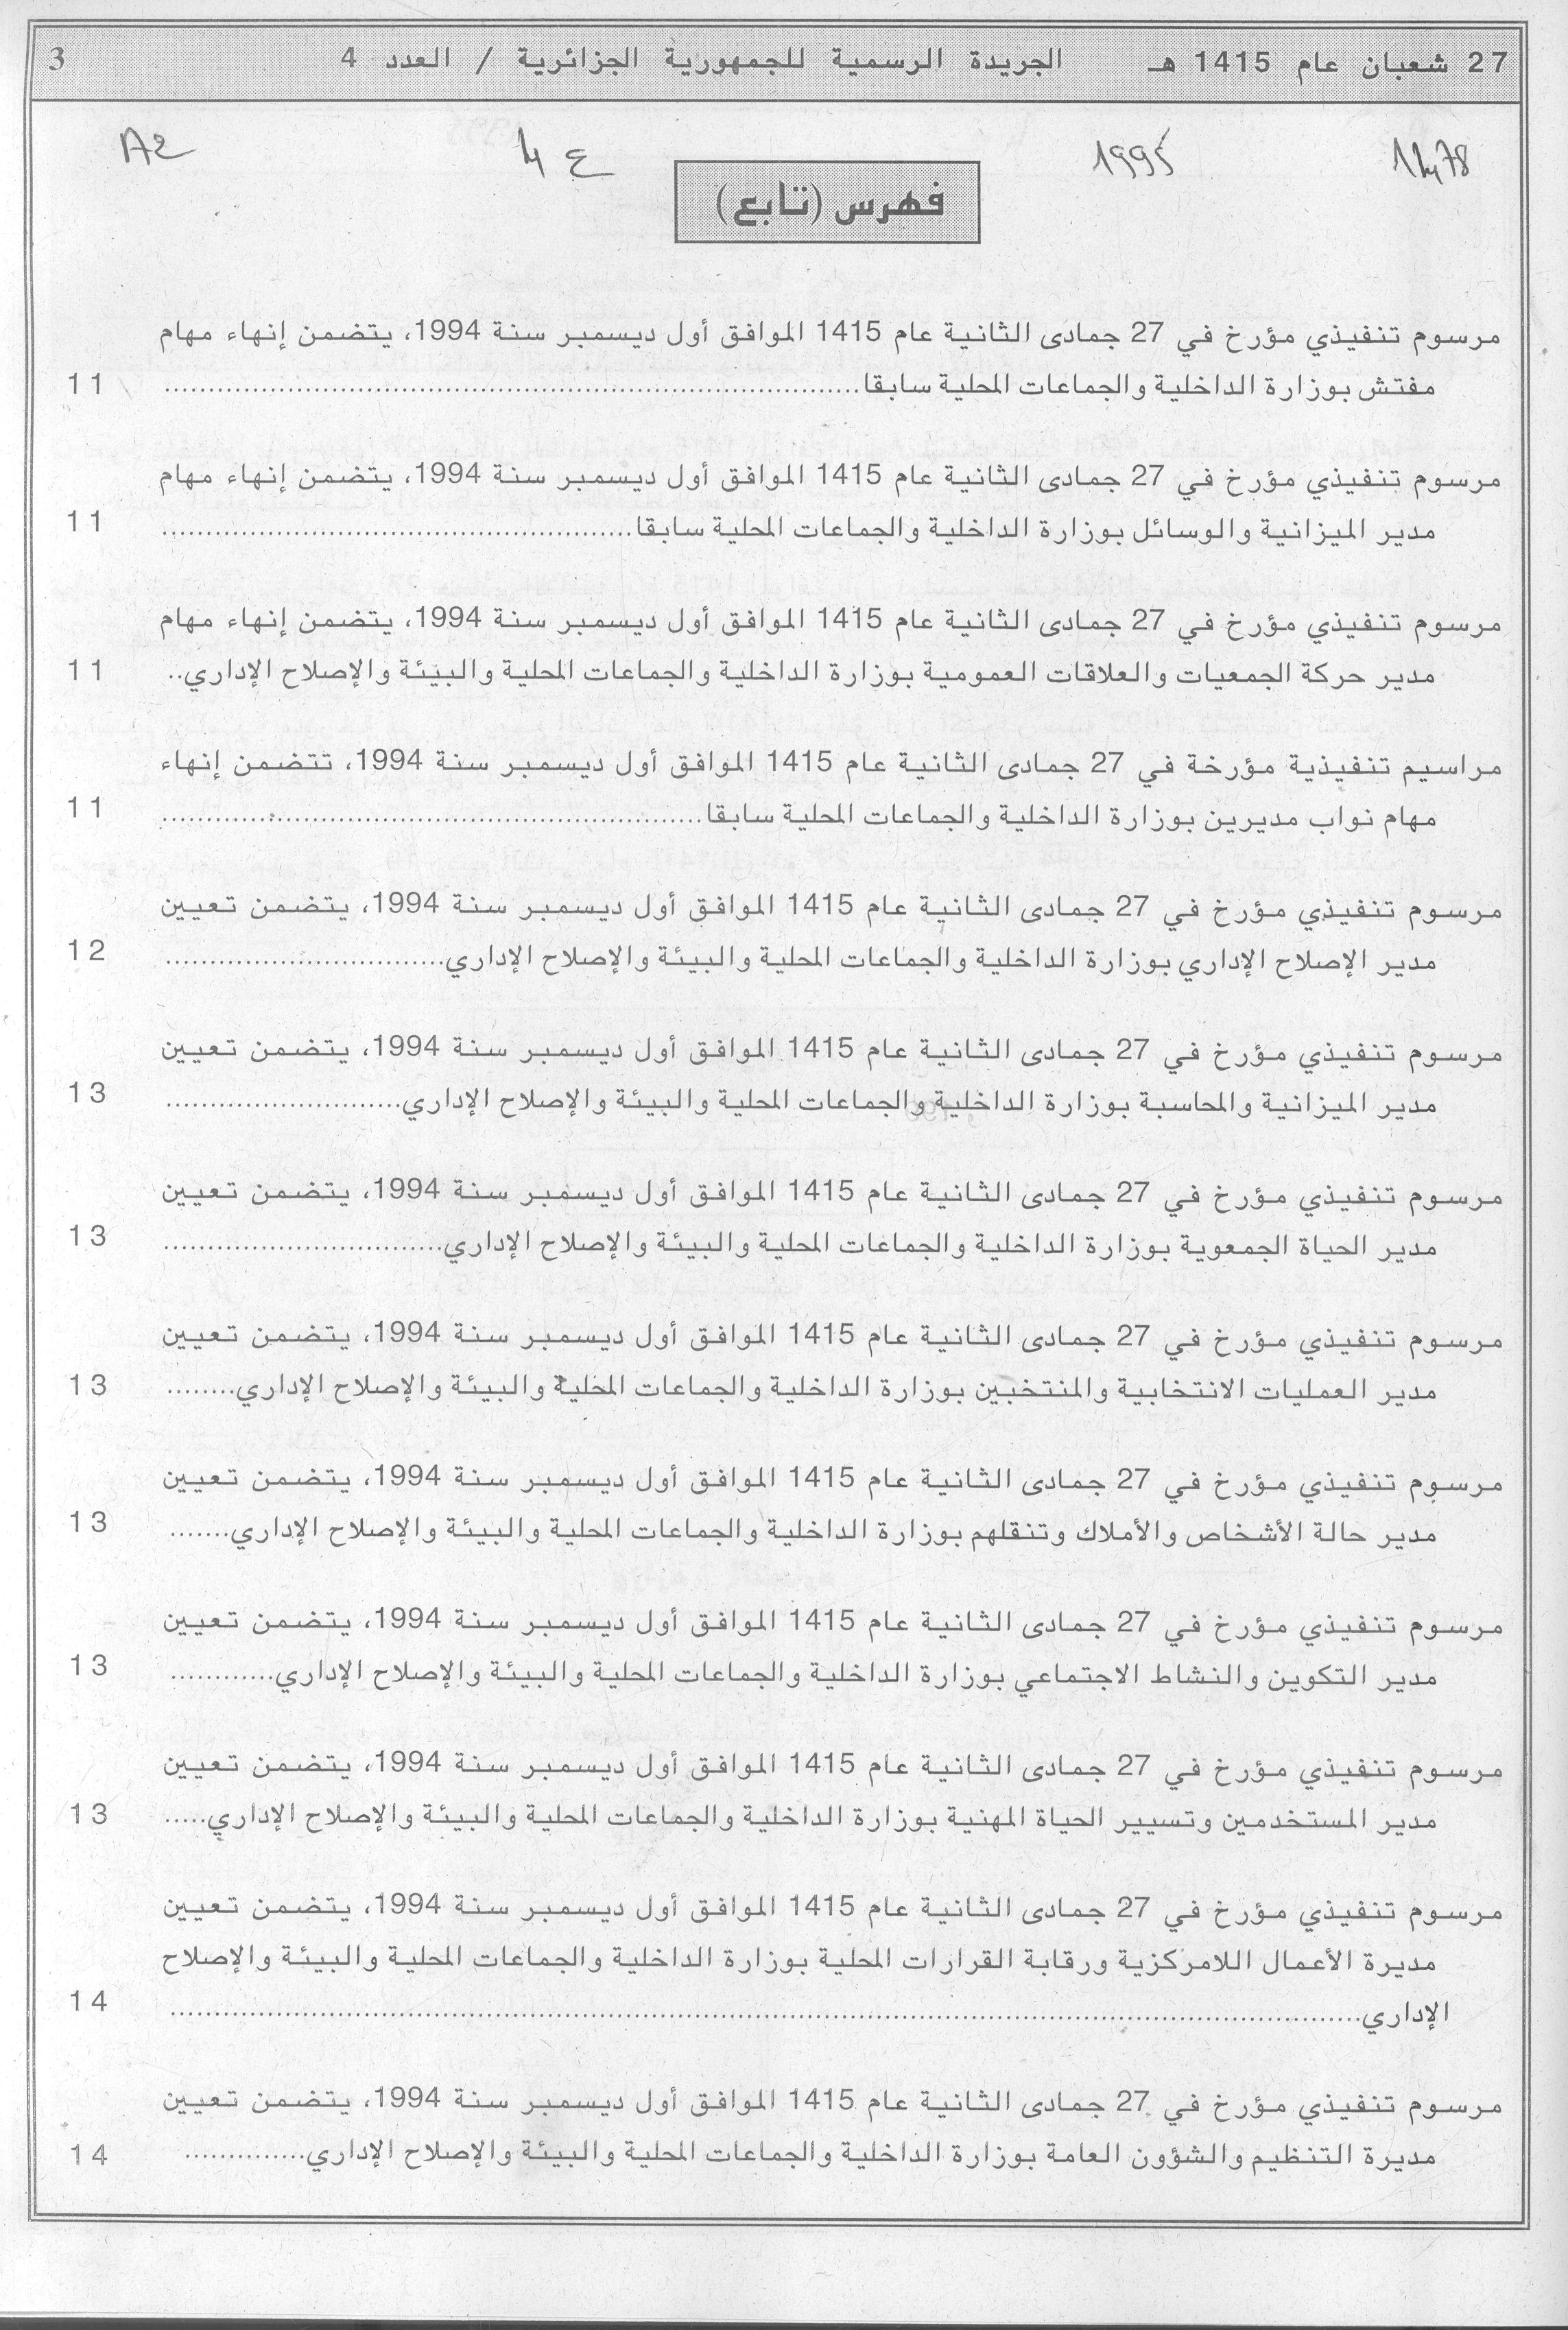 27 شعبان عام 1415 هـ الجريدة الرسمية للجمهورية الجزائرية / العدد 4 3
1478 1995 4 ع A2
فهرس (تابع)
مرسوم تنفيذي مؤرخ في 27 جمادى الثانية عام 1415 الموافق أول ديسمبر سنة 1994، يتضمن إنهاء مهام
مفتش بوزارة الداخلية والجماعات المحلية سابقا........ 11
مرسوم تنفيذي مؤرخ في 27 جمادى الثانية عام 1415 الموافق أول ديسمبر سنة 1994، يتضمن إنهاء مهام
مدير الميزانية والوسائل بوزارة الداخلية والجماعات المحلية سابقا........ 11
مرسوم تنفيذي مؤرخ في 27 جمادى الثانية عام 1415 الموافق أول ديسمبر سنة 1994، يتضمن إنهاء مهام
مدير حركة الجمعيات والعلاقات العمومية بوزارة الداخلية والجماعات المحلية والبيئة والإصلاح الإداري.. 11
مراسيم تنفيذية مؤرخة في 27 جمادى الثانية عام 1415 الموافق أول ديسمبر سنة 1994، تتضمن إنهاء
مهام نواب مديرين بوزارة الداخلية والجماعات المحلية سابقا........ 11
مرسوم تنفيذي مؤرخ في 27 جمادى الثانية عام 1415 الموافق أول ديسمبر سنة 1994، يتضمن تعيين
مدير الإصلاح الإداري بوزارة الداخلية والجماعات المحلية والبيئة والإصلاح الإداري........ 12
مرسوم تنفيذي مؤرخ في 27 جمادى الثانية عام 1415 الموافق أول ديسمبر سنة 1994، يتضمن تعيين
مدير الميزانية والمحاسبة بوزارة الداخلية والجماعات المحلية والبيئة والإصلاح الإداري........ 13
مرسوم تنفيذي مؤرخ في 27 جمادى الثانية عام 1415 الموافق أول ديسمبر سنة 1994، يتضمن تعيين
مدير الحياة الجمعوية بوزارة الداخلية والجماعات المحلية والبيئة والإصلاح الإداري........ 13
مرسوم تنفيذي مؤرخ في 27 جمادى الثانية عام 1415 الموافق أول ديسمبر سنة 1994، يتضمن تعيين
مدير العمليات الانتخابية والمنتخبين بوزارة الداخلية والجماعات المحلية والبيئة والإصلاح الإداري........ 13
مرسوم تنفيذي مؤرخ في 27 جمادى الثانية عام 1415 الموافق أول ديسمبر سنة 1994، يتضمن تعيين
مدير حالة الأشخاص والأملاك وتنقلهم بوزارة الداخلية والجماعات المحلية والبيئة والإصلاح الإداري....... 13
مرسوم تنفيذي مؤرخ في 27 جمادى الثانية عام 1415 الموافق أول ديسمبر سنة 1994، يتضمن تعيين
مدير التكوين والنشاط الاجتماعي بوزارة الداخلية والجماعات المحلية والبيئة والإصلاح الإداري............ 13
مرسوم تنفيذي مؤرخ في 27 جمادى الثانية عام 1415 الموافق أول ديسمبر سنة 1994، يتضمن تعيين
مدير المستخدمين وتسيير الحياة المهنية بوزارة الداخلية والجماعات المحلية والبيئة والإصلاح الإداري..... 13
مرسوم تنفيذي مؤرخ في 27 جمادى الثانية عام 1415 الموافق أول ديسمبر سنة 1994، يتضمن تعيين
مديرة الأعمال اللامركزية ورقابة القرارات المحلية بوزارة الداخلية والجماعات المحلية والبيئة والإصلاح
الإداري........ 14
مرسوم تنفيذي مؤرخ في 27 جمادى الثانية عام 1415 الموافق أول ديسمبر سنة 1994، يتضمن تعيين
مديرة التنظيم والشؤون العامة بوزارة الداخلية والجماعات المحلية والبيئة والإصلاح الإداري.............. 14